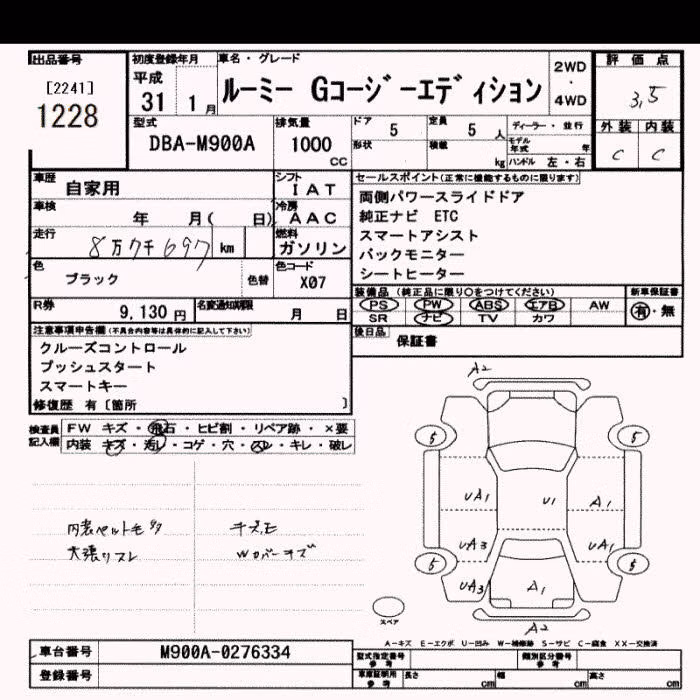 出品番号
[2241]
1228
初度登録年月
平成
31 1月
車名・グレード
ルーミー Gコージーエディション
2WD
・
4WD
評価点
3,5
外装 内装
C C
型式
DBA-M900A
排気量
1000
CC
ドア 5
定員 5 人
形状
積載 kg
ディーラー・並行
モデル年式 年
ハンドル 左・右
車歴 自家用
シフト IAT
車検 年 月( 日)
冷房 AAC
走行 8万7千697 km
燃料 ガソリン
色 ブラック 色替
色コード X07
R券 9,130 円
名変通知期限 月 日
セールスポイント(正常に機能するものに限ります)
両側パワースライドドア
純正ナビ ETC
スマートアシスト
バックモニター
シートヒーター
装備品(純正品に限り○をつけてください)
PS PW ABS エアB AW
SR ナビ TV カワ
新車保証書
有・無
後日品 保証書
注意事項申告欄(不具合内容等は具体的に記入して下さい)
クルーズコントロール
プッシュスタート
スマートキー
修復歴 有〔箇所 〕
検査員記入欄
FW キズ・飛石・ヒビ割・リペア跡・×要
内装 キズ・汚レ・コゲ・穴・スレ・キレ・破レ
内装ペット毛
天張りスレ
Wカバーキズ
A2
5 5
UA1 U1 A1
UA3 UA1
5 5
UA3 A1
A2
スペア
A-キズ E-エクボ U-凹み W-補修跡 S-サビ C-腐食 XX-交換済
車台番号 M900A-0276334
登録番号
型式指定番号 参考
類別区分番号 参考
車庫証明用 参考
長さ cm
幅 cm
高さ cm